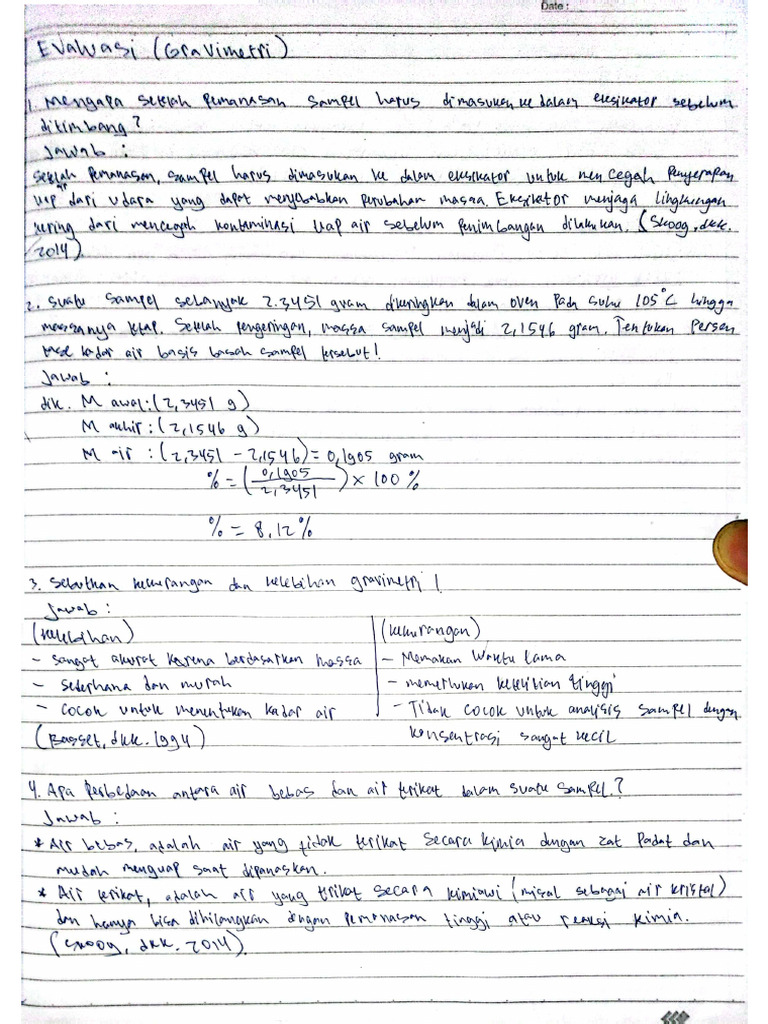 Date :
Evaluasi (Gravimetri)
1. Mengapa setelah pemanasan sampel harus dimasukan ke dalam eksikator sebelum
ditimbang?
Jawab :
Setelah pemanasan, sampel harus dimasukan ke dalam eksikator untuk mencegah penyerapan
uap air dari udara yang dapat menyebabkan perubahan massa. Eksikator menjaga lingkungan
kering dari mencegah kontaminasi uap air sebelum penimbangan dilakukan. (Skoog, dkk.
2014).
2. Suatu sampel sebanyak 2.3451 gram dikeringkan dalam oven pada suhu 105°C hingga
massanya tetap. Setelah pengeringan, massa sampel menjadi 2,1546 gram. Tentukan persen
tase kadar air basis basah sampel tersebut!
Jawab :
dik. M awal : (2,3451 g)
M akhir : (2,1546 g)
M air : (2,3451 - 2,1546) = 0,1905 gram
% = (0,1905 / 2,3451) x 100 %
% = 8,12%
3. Sebutkan kekurangan dan kelebihan gravimetri!
Jawab :
(kelebihan) (kekurangan)
- Sangat akurat karena berdasarkan massa - Memakan waktu lama
- Sederhana dan murah - memerlukan ketelitian tinggi
- Cocok untuk menentukan kadar air - Tidak cocok untuk analisis sampel dengan
(Basset, dkk. 1994) konsentrasi sangat kecil
4. Apa perbedaan antara air bebas dan air terikat dalam suatu sampel?
Jawab :
* Air bebas, adalah air yang tidak terikat secara kimia dengan zat padat dan
mudah menguap saat dipanaskan.
* Air terikat, adalah air yang trikat secara kimiawi (misal sebagai air kristal)
dan hanya bisa dihilangkan dengan pemanasan tinggi atau reaksi kimia.
(Skoog, dkk. 2014).